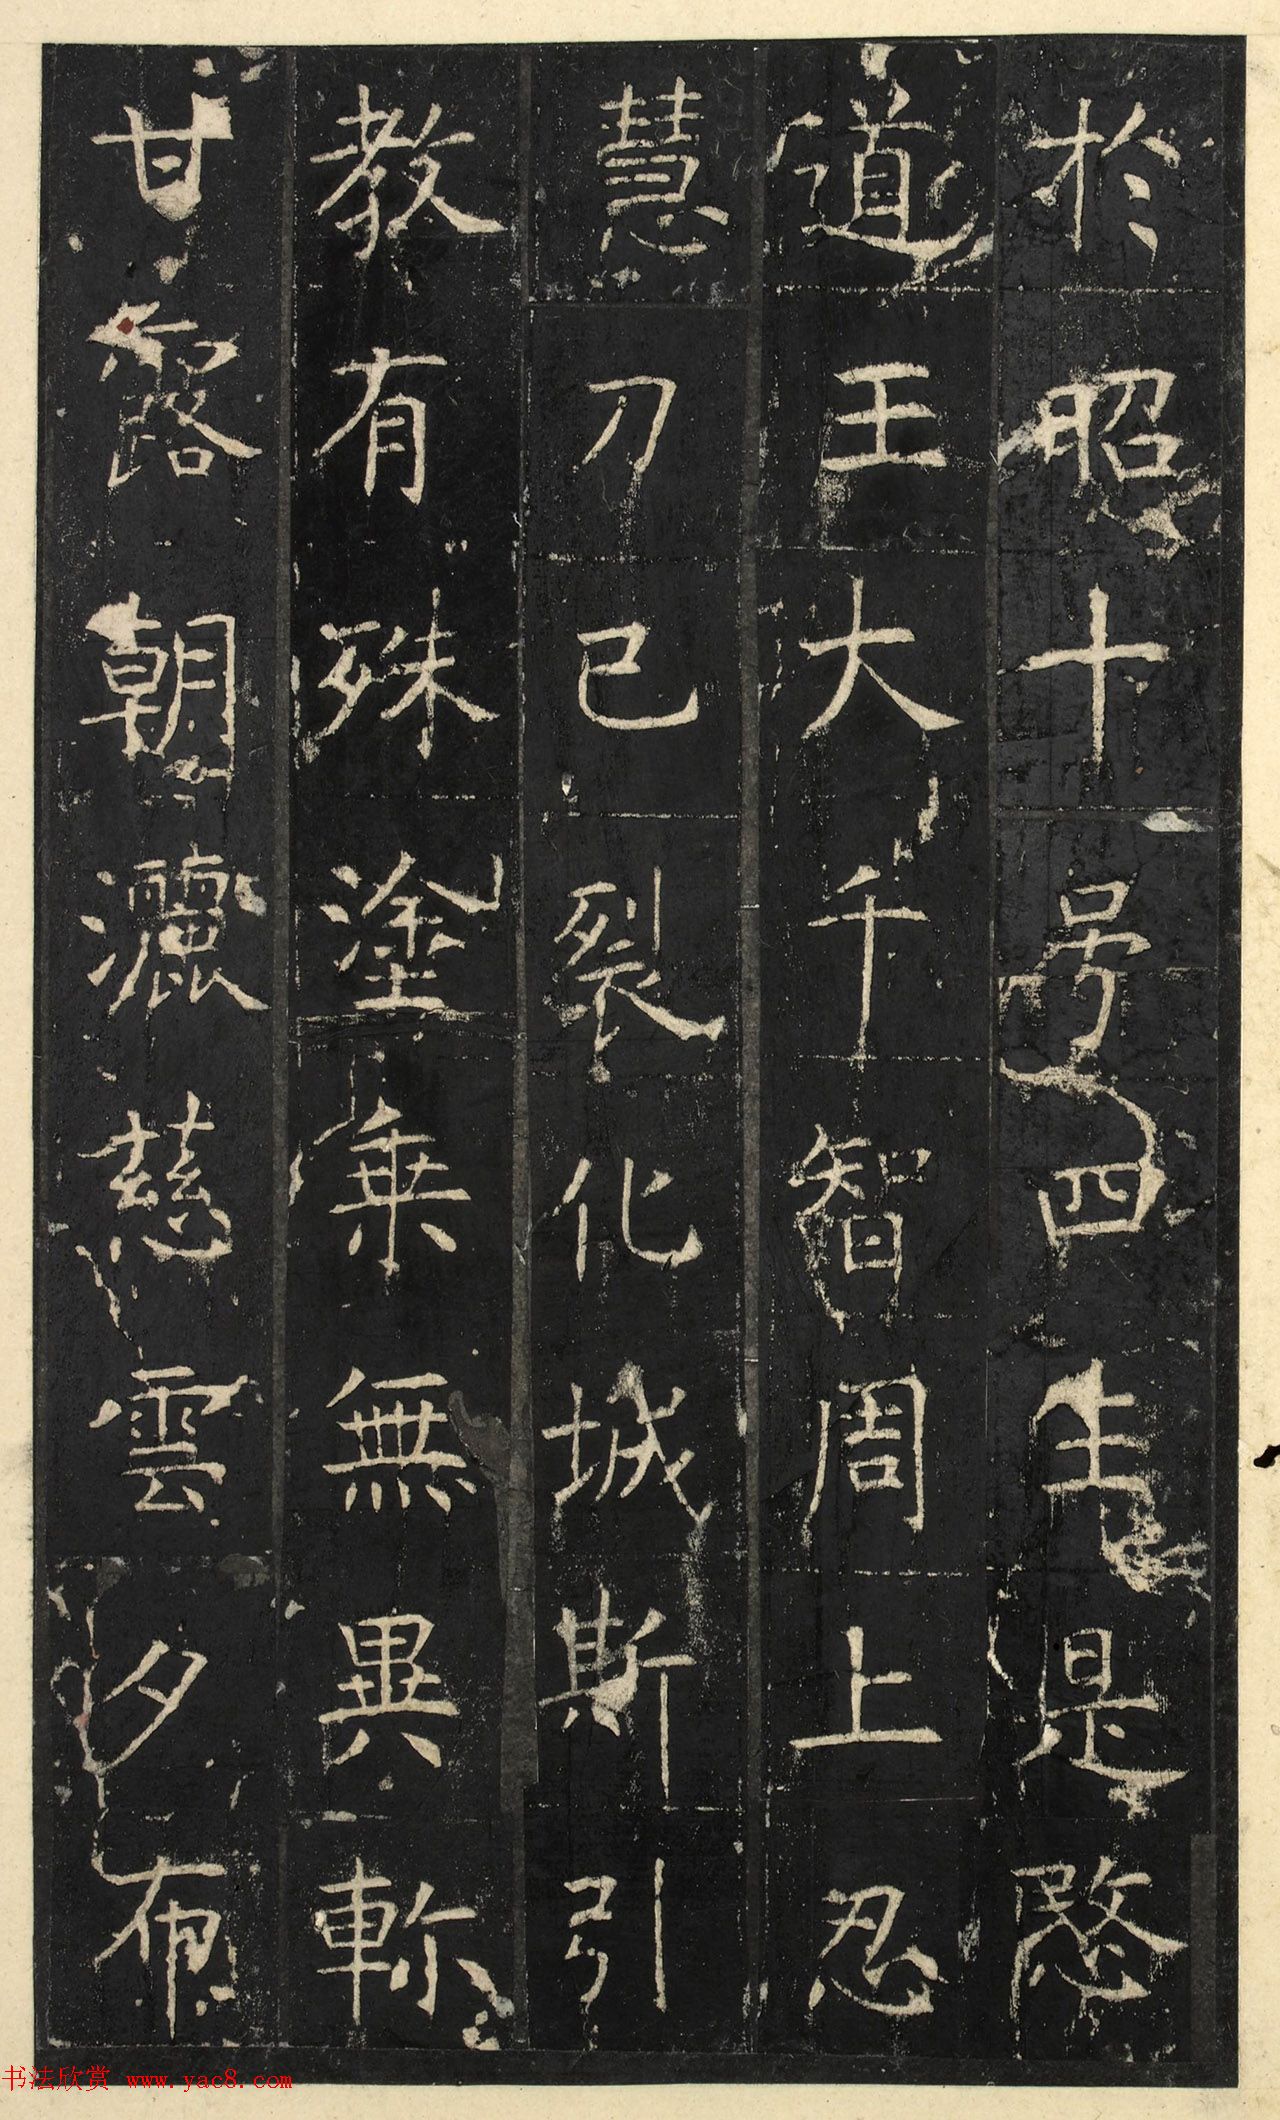 於昭十号四生是愍
道王大千智周上忍
慧刀已裂化城斯引
教有殊塗乗無異軫
甘露朝灑慈雲夕布
书法欣赏 www.yac8.com